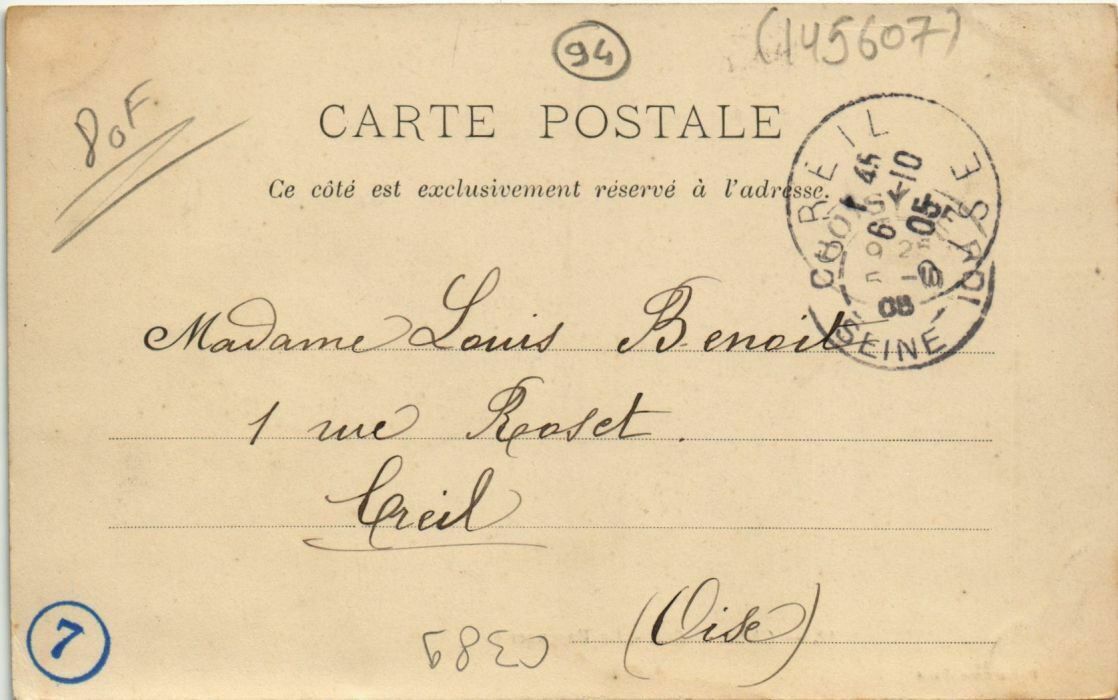 (94)
(145607)
80F
CARTE POSTALE
Ce côté est exclusivement réservé à l'adresse.
CREIL
7 45
6 -10
05
OISE
CHOISY LE ROI
08
SEINE
Madame Louis Benoit
1 rue Roset.
Creil
(Oise)
7
C389